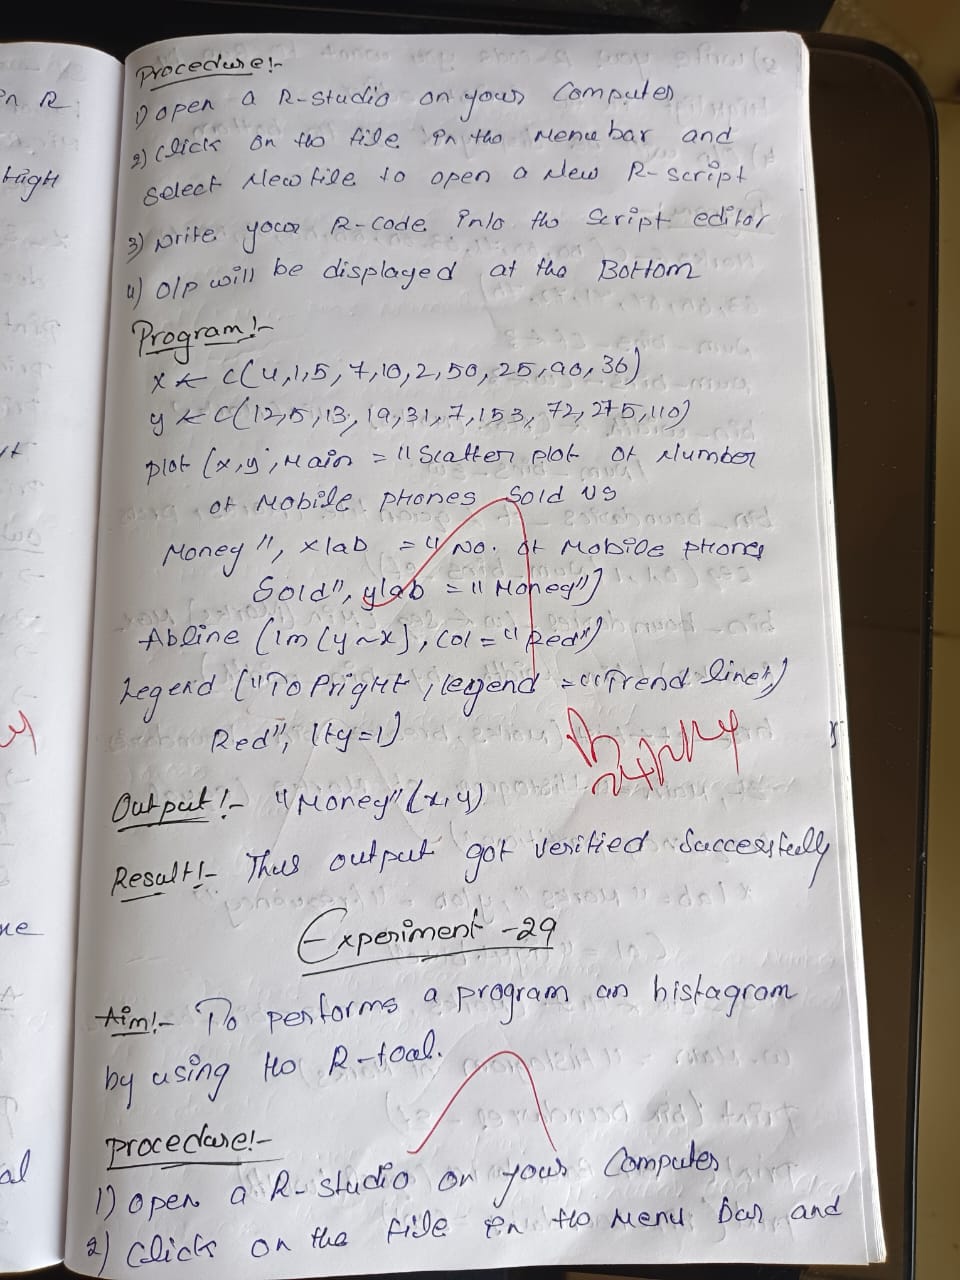 en R
High
Procedure!-
1) open a R-studio on your Computer
2) Click on the file in the Menu bar and
Select New file to open a New R-script
3) Write your R-Code into the Script editor
4) O/P will be displayed at the Bottom
Program!-
x <- c(4,1,5,7,10,2,50,25,90,36)
y <- c(12,5,13,19,31,7,153,72,275,110)
plot (x,y, Main = "Scatter plot of Number
of Mobile phones Sold vs
Money", xlab = "No. of Mobile phones
Sold", ylab = "Money")
Abline (lm (y~x), Col = "Red")
Legend ("Topright, legend = "Trend line",)
Red", lty=1)
Output!- "Money" (x,y)
Result!- Thus output got verified Successfully
Experiment -29
Aim!- To performs a program on histagram
by using the R-tool.
procedure!-
1) open a R-studio on your Computer
2) Click on the file in the Menu bar and
al